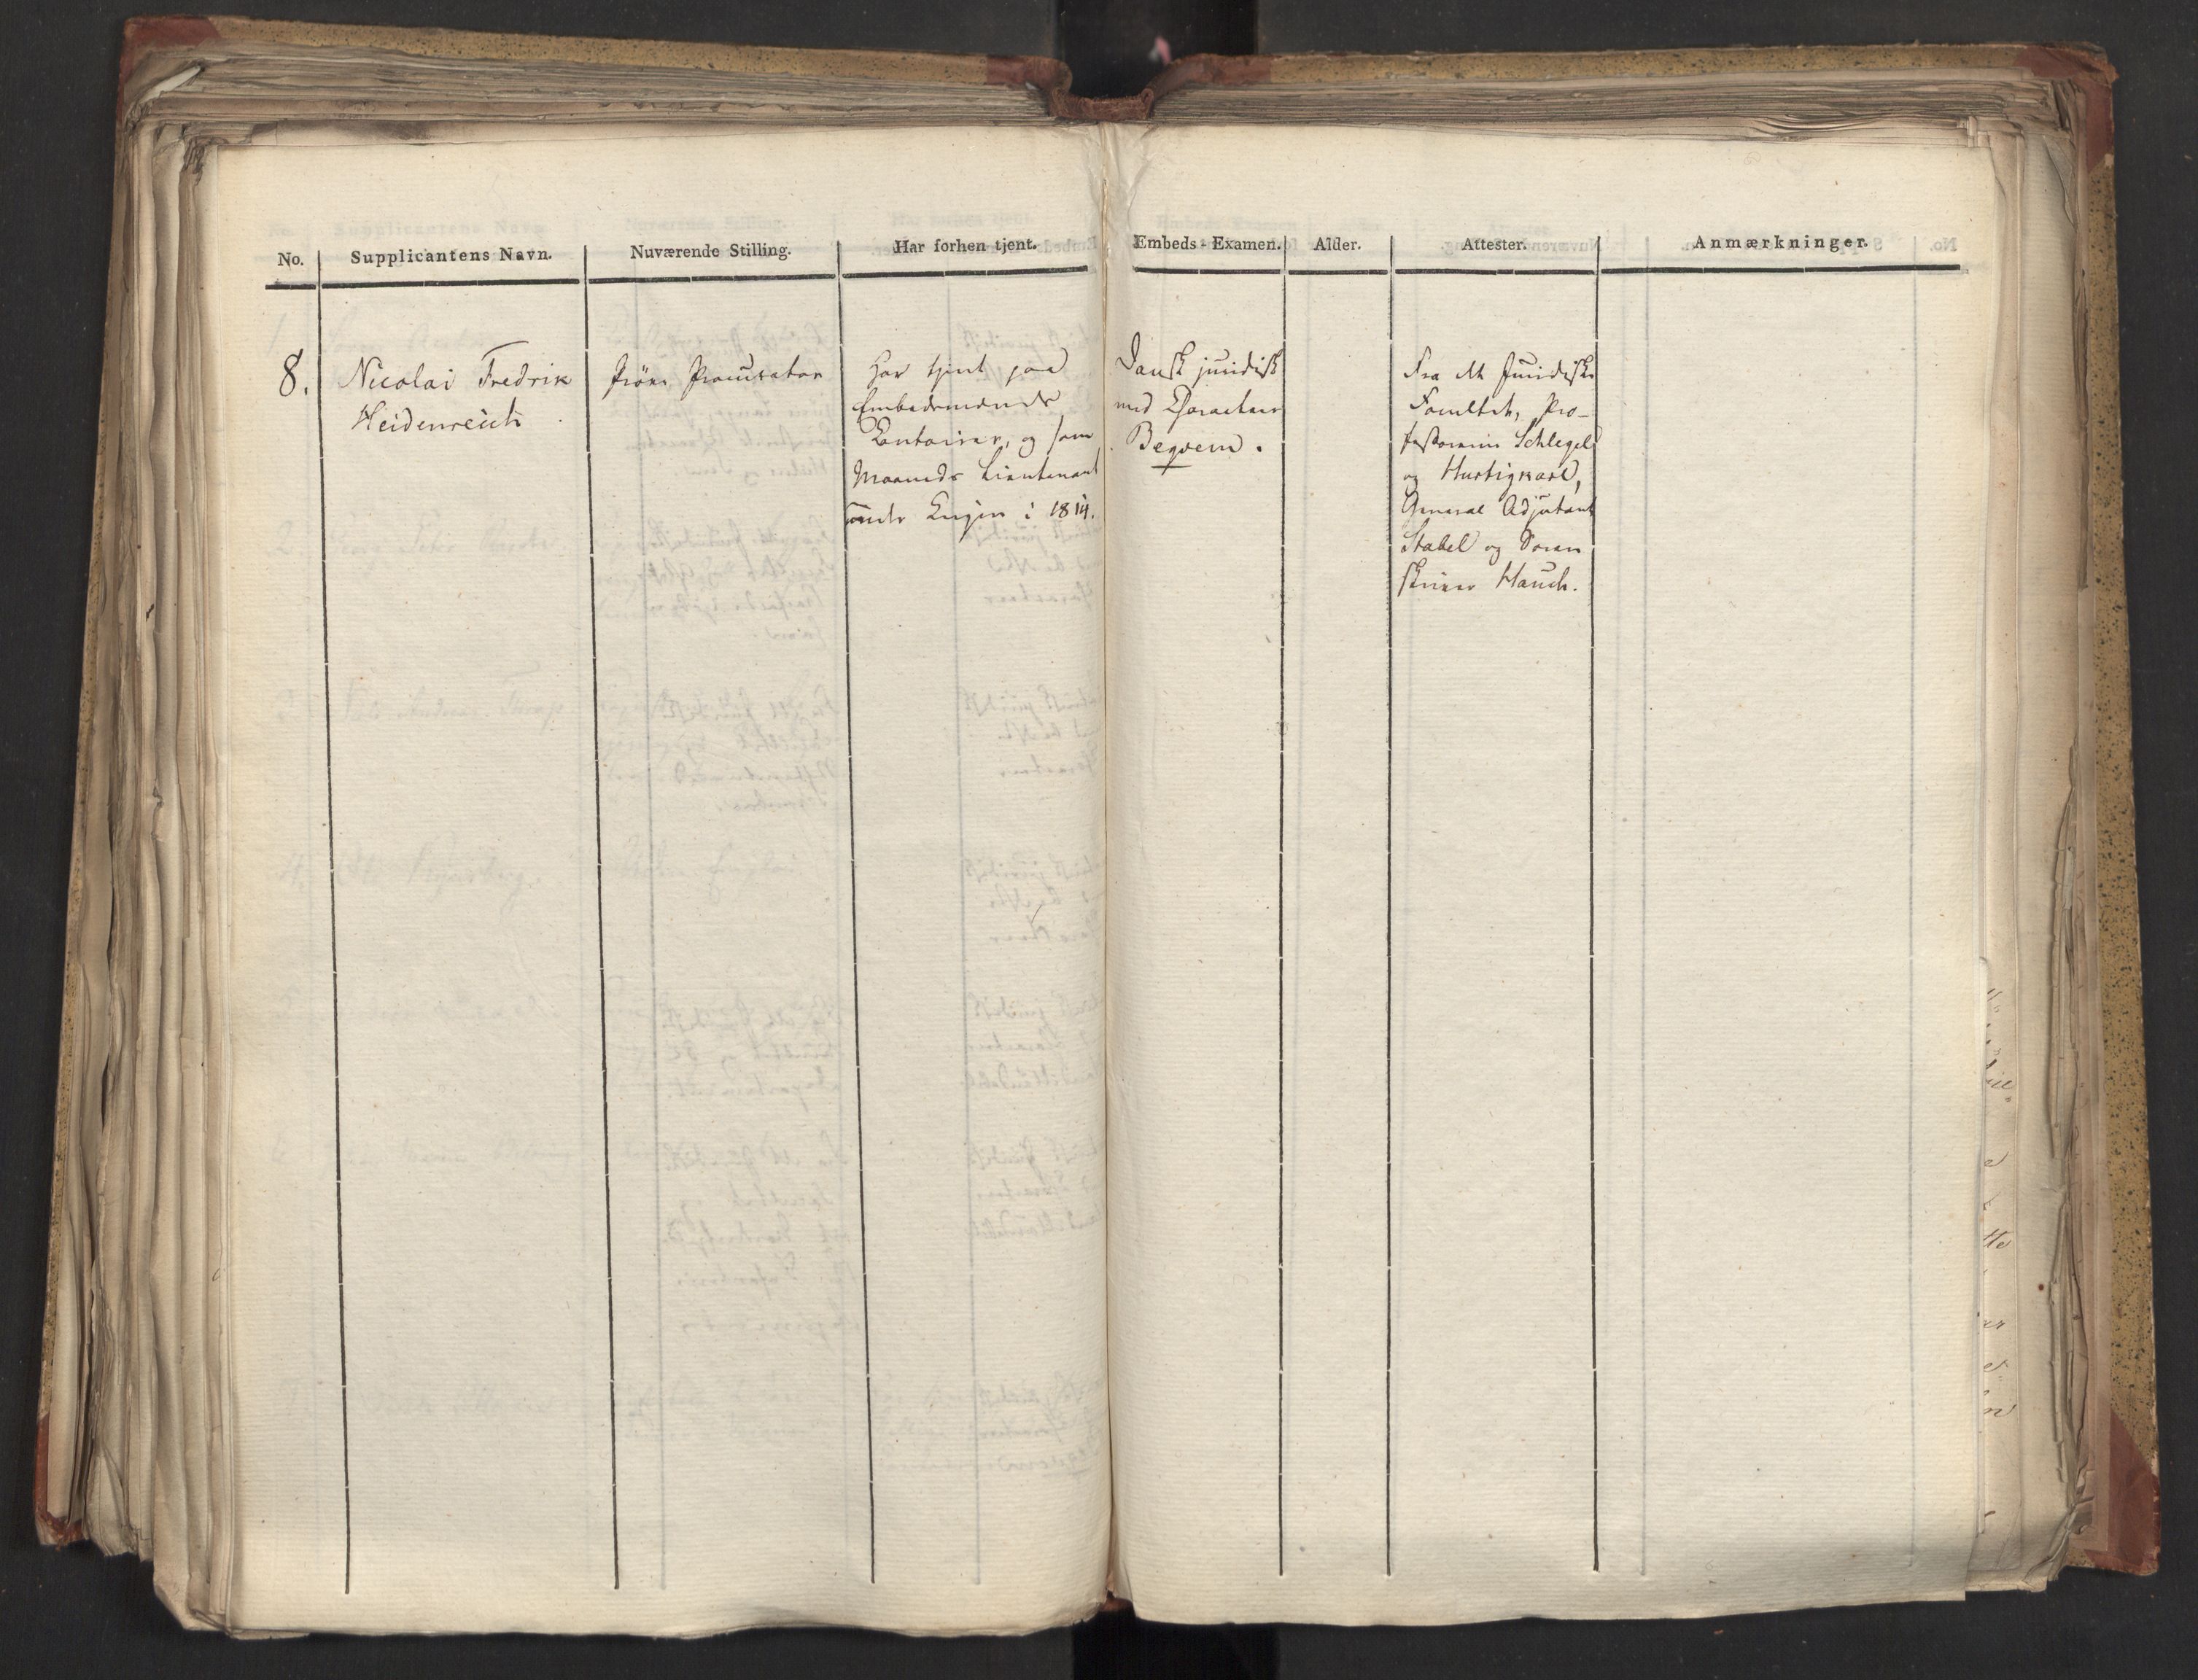 No. Supplicantens Navn. Nuværende Stilling. Har forhen tjent. Embeds-Examen. Alder. Attester. Anmærkninger.
8.
Nicolai Fredrik
Heidenreich
Prøve Procurator
Har tjent paa
Embedsmænds
Contoirer, og som
Maaneds Lieutenant
under Krigen i 1814.
Dansk juridisk
med Characteer
Beqvem.
Fra det Juridiske
Facultet, Pro-
fessorerne Schlegel
og Hurtigkarl,
General Adjutant
Stabel og Soren
skriver Hauch.